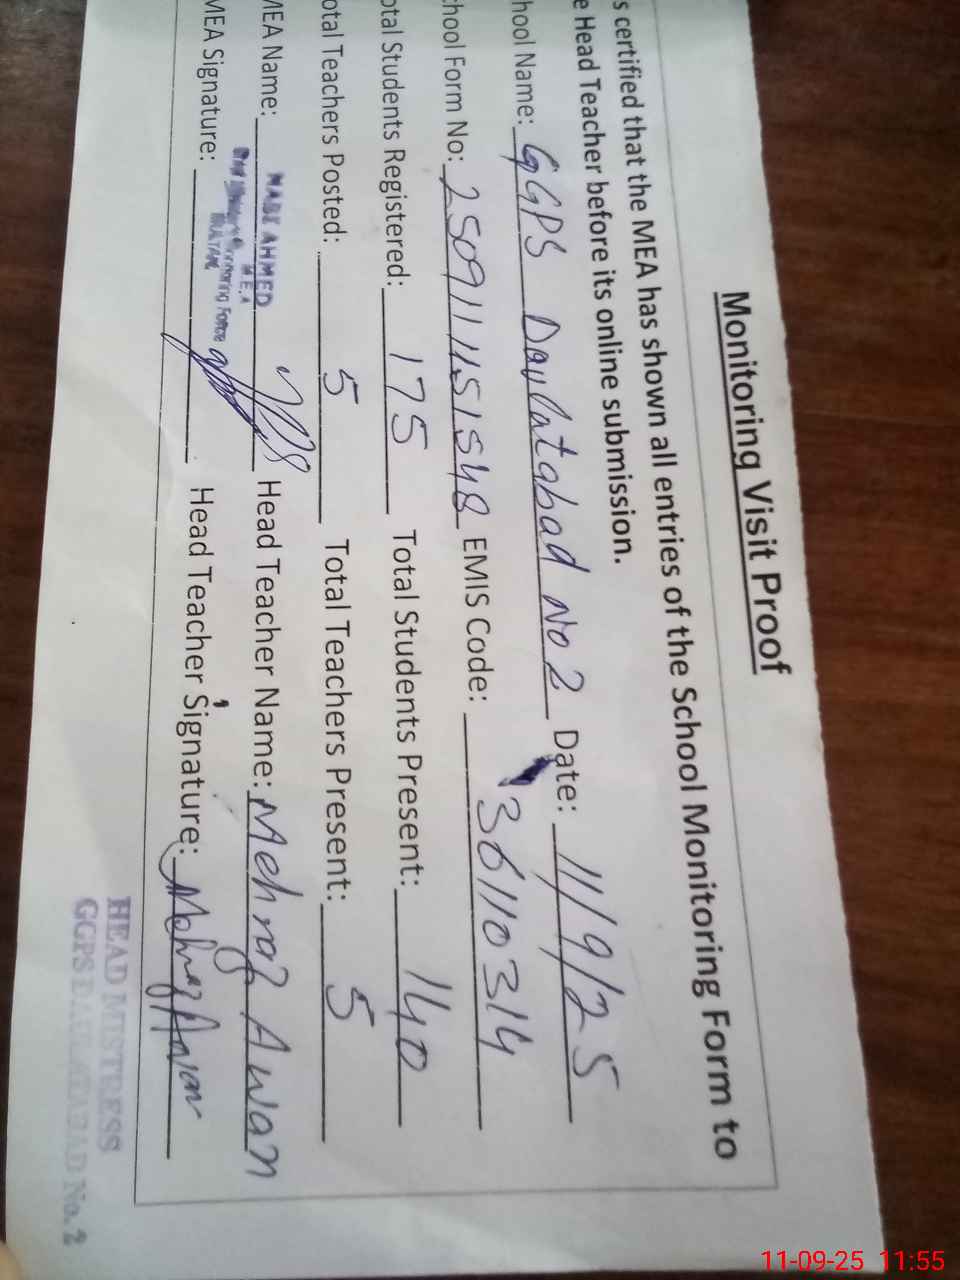 Monitoring Visit Proof
s certified that the MEA has shown all entries of the School Monitoring Form to
e Head Teacher before its online submission.
hool Name: GGPS Daulatabad No 2 Date: 11/9/25
chool Form No: EMIS Code: 36110314
otal Students Registered: 175 Total Students Present: 140
otal Teachers Posted: 5 Total Teachers Present: 5
MEA Name: Head Teacher Name: Mehnaz Awan
AHMED
M.E.A
Monitoring Force
MULTAN
MEA Signature: Head Teacher Signature: Mehnaz Awan
HEAD MISTRESS
GGPS DAULATABAD No. 2
11-09-25 11:55